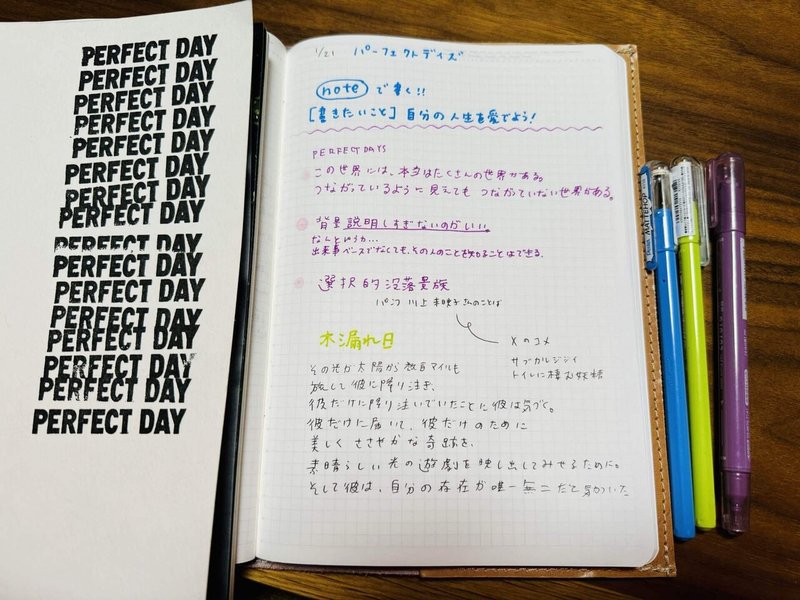 PERFECT DAY
PERFECT DAY
PERFECT DAY
PERFECT DAY
PERFECT DAY
PERFECT DAY
PERFECT DAY
PERFECT DAY
PERFECT DAY
PERFECT DAY
PERFECT DAY
PERFECT DAY
PERFECT DAY
PERFECT DAY
PERFECT DAY
PERFECT DAY
1/21 パーフェクトデイズ
note で書く!!
[書きたいこと] 自分の人生を愛でよう!
PERFECT DAYS
この世界には、本当はたくさんの世界がある。
つながっているように見えても つながっていない世界がある。
背景説明しすぎないのがいい。
なんというか…
出来事ベースでなくしても、その人のことを知ることはできる。
選択的没落貴族
パンフ 川上未映子さんのことば
Xのコメ
サブカルジジイ
トイレに棲む妖精
木漏れ日
その光が太陽から数百マイルも
旅して彼に降り注ぎ、
彼だけに降り注いでいたことに彼は気づく。
彼だけに届いて、彼だけのために
美しく ささやかな奇跡を、
素晴らしい光の遊劇を映し出してみせるために。
そして彼は、自分の存在が唯一無二だと気づいた
MATTEHOP